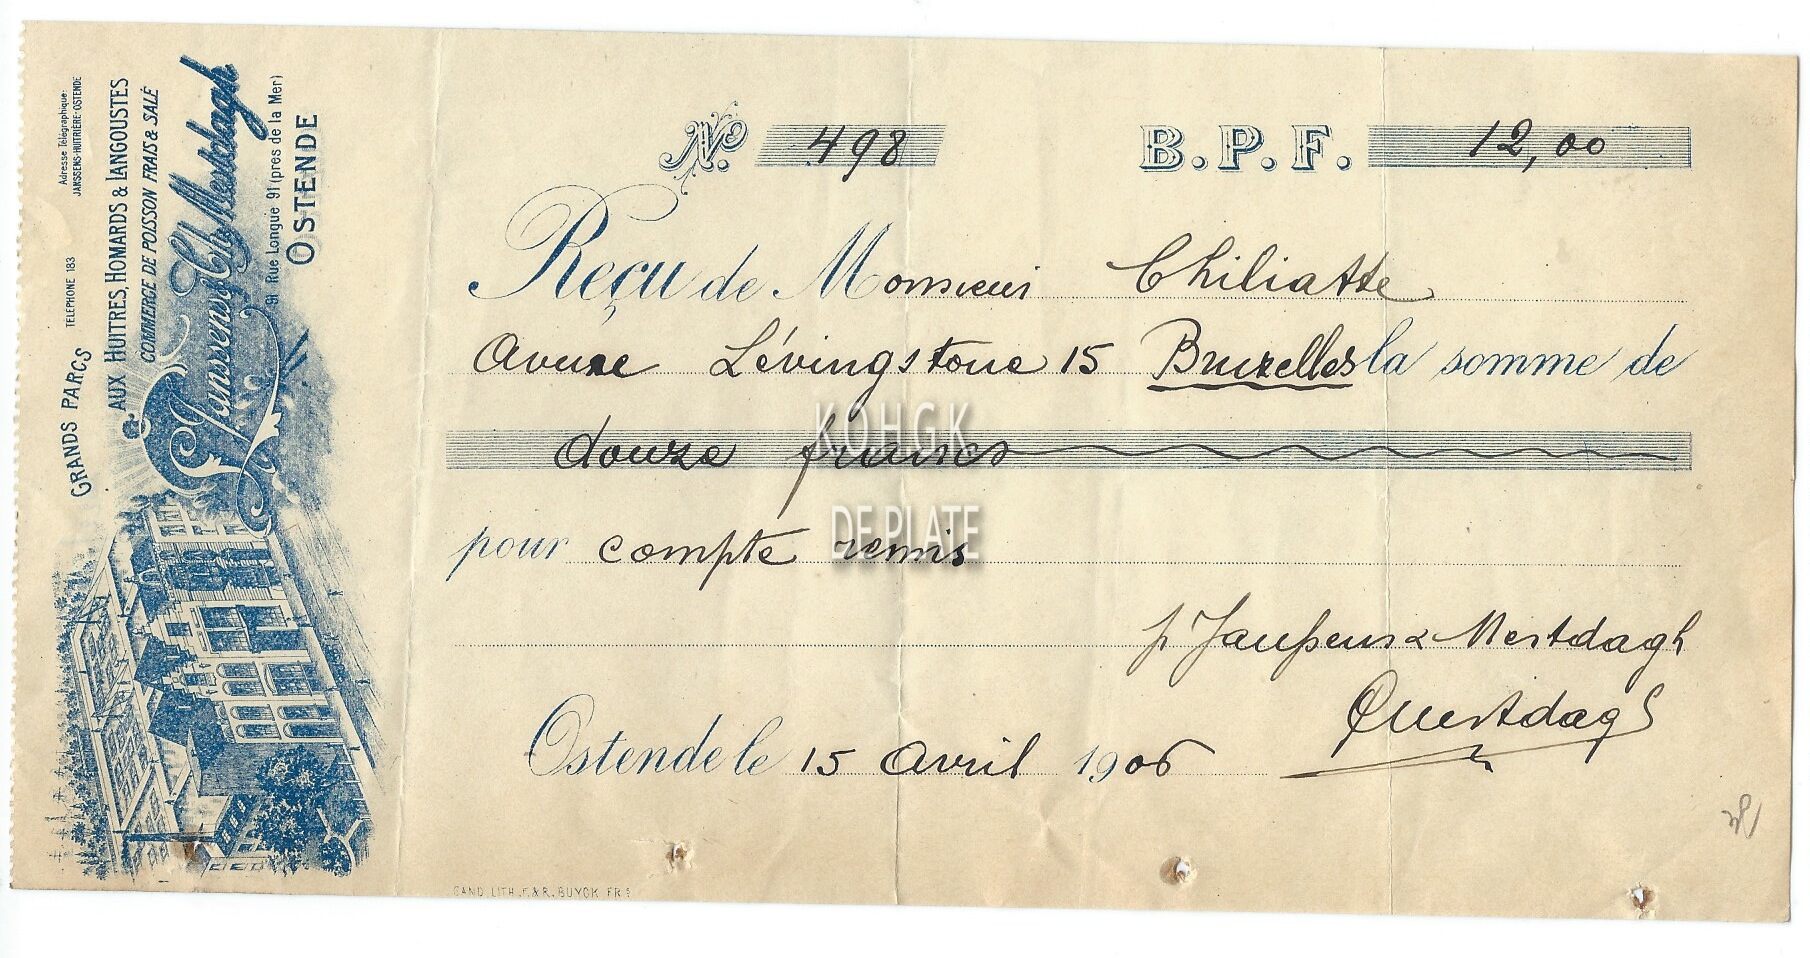 Adresse Télégraphique:
JANSSENS-HUITRIÈRE-OSTENDE
TELEPHONE 183
GRANDS PARCS
AUX HUITRES, HOMARDS & LANGOUSTES
COMMERCE DE POISSON FRAIS & SALÉ
Janssens & Ch. Mestdagh
91 Rue Longue 91 (près de la Mer)
OSTENDE
No. 498 B.P.F. 12,00
Reçu de Monsieur Chiliatte
Avenue Lévingstone 15 Bruxelles la somme de
douze francs
pour compte remis
p Janssens & Mestdagh
Mestdagh
Ostende le 15 Avril 1906
GAND. LITH. F. & R. BUYCK FRS
KOHGK
DE PLATE